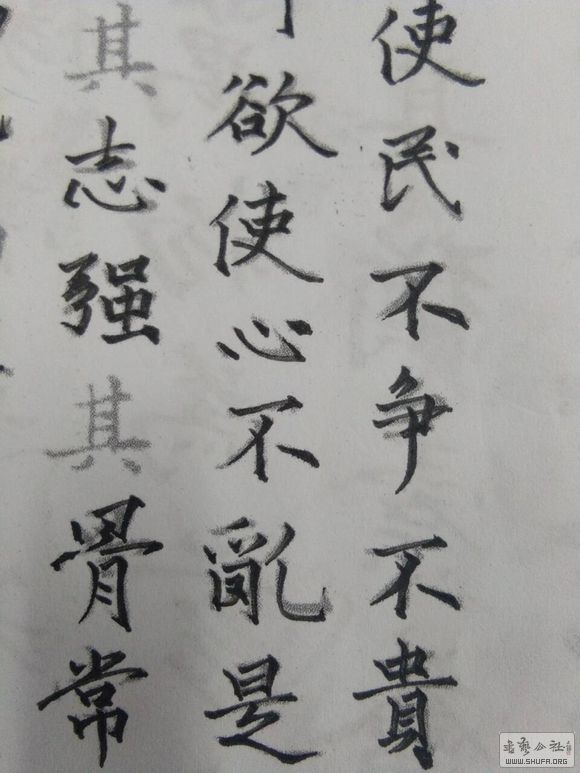 使民不争不貴
欲使心不亂是
其志强其骨常
书艺公社
WWW.SHUFA.ORG